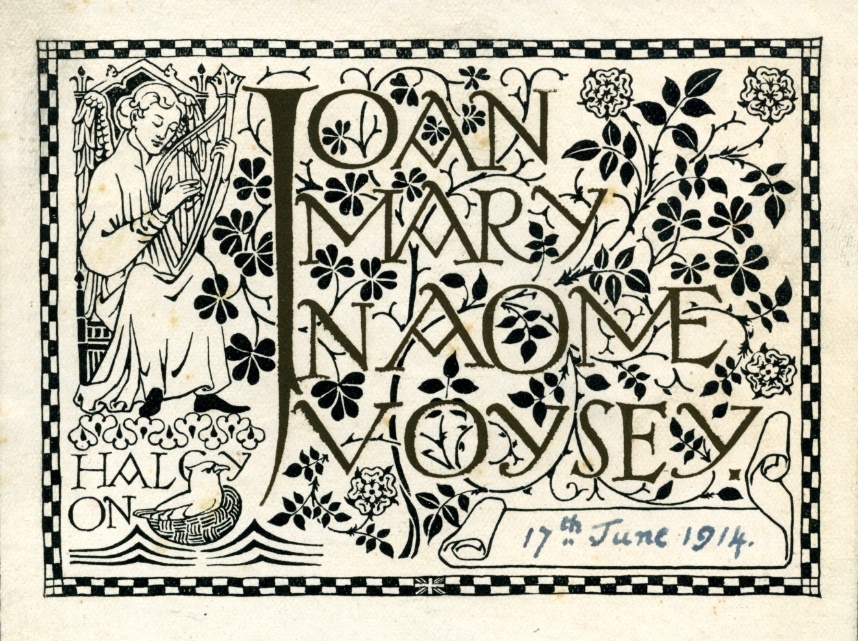 JOAN
MARY
NAOME
VOYSEY.
HALCY
ON
17th June 1914.